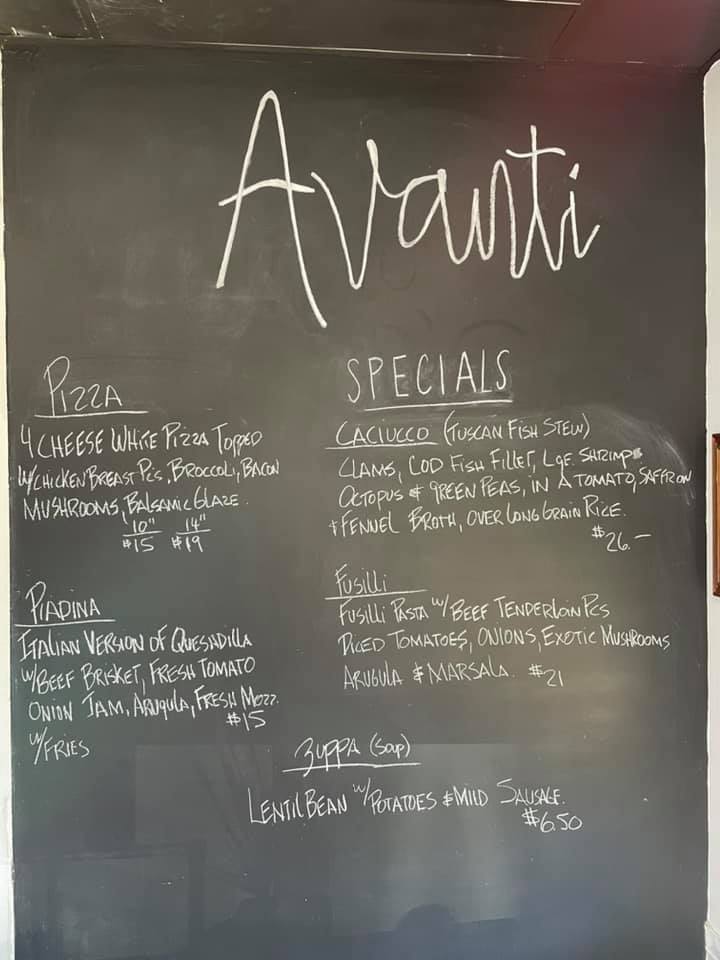 Avanti
PIZZA
4 CHEESE WHITE PIZZA TOPPED
W/CHICKEN BREAST PCS, BROCCOLI, BACON
MUSHROOMS, BALSAMIC GLAZE.
10" 14"
$15 $19
PIADINA
ITALIAN VERSION OF QUESADILLA
W/BEEF BRISKET, FRESH TOMATO
ONION JAM, ARUGULA, FRESH MOZZ.
$15
W/FRIES
SPECIALS
CACIUCCO (TUSCAN FISH STEW)
CLAMS, COD FISH FILLET, LGE. SHRIMPS
OCTOPUS & GREEN PEAS, IN A TOMATO, SAFFRON
& FENNEL BROTH, OVER LONG GRAIN RICE.
$26.—
FUSILLI
FUSILLI PASTA W/BEEF TENDERLOIN PCS
DICED TOMATOES, ONIONS, EXOTIC MUSHROOMS
ARUGULA & MARSALA. $21
ZUPPA (SOUP)
LENTIL BEAN W/POTATOES & MILD SAUSAGE.
$6.50